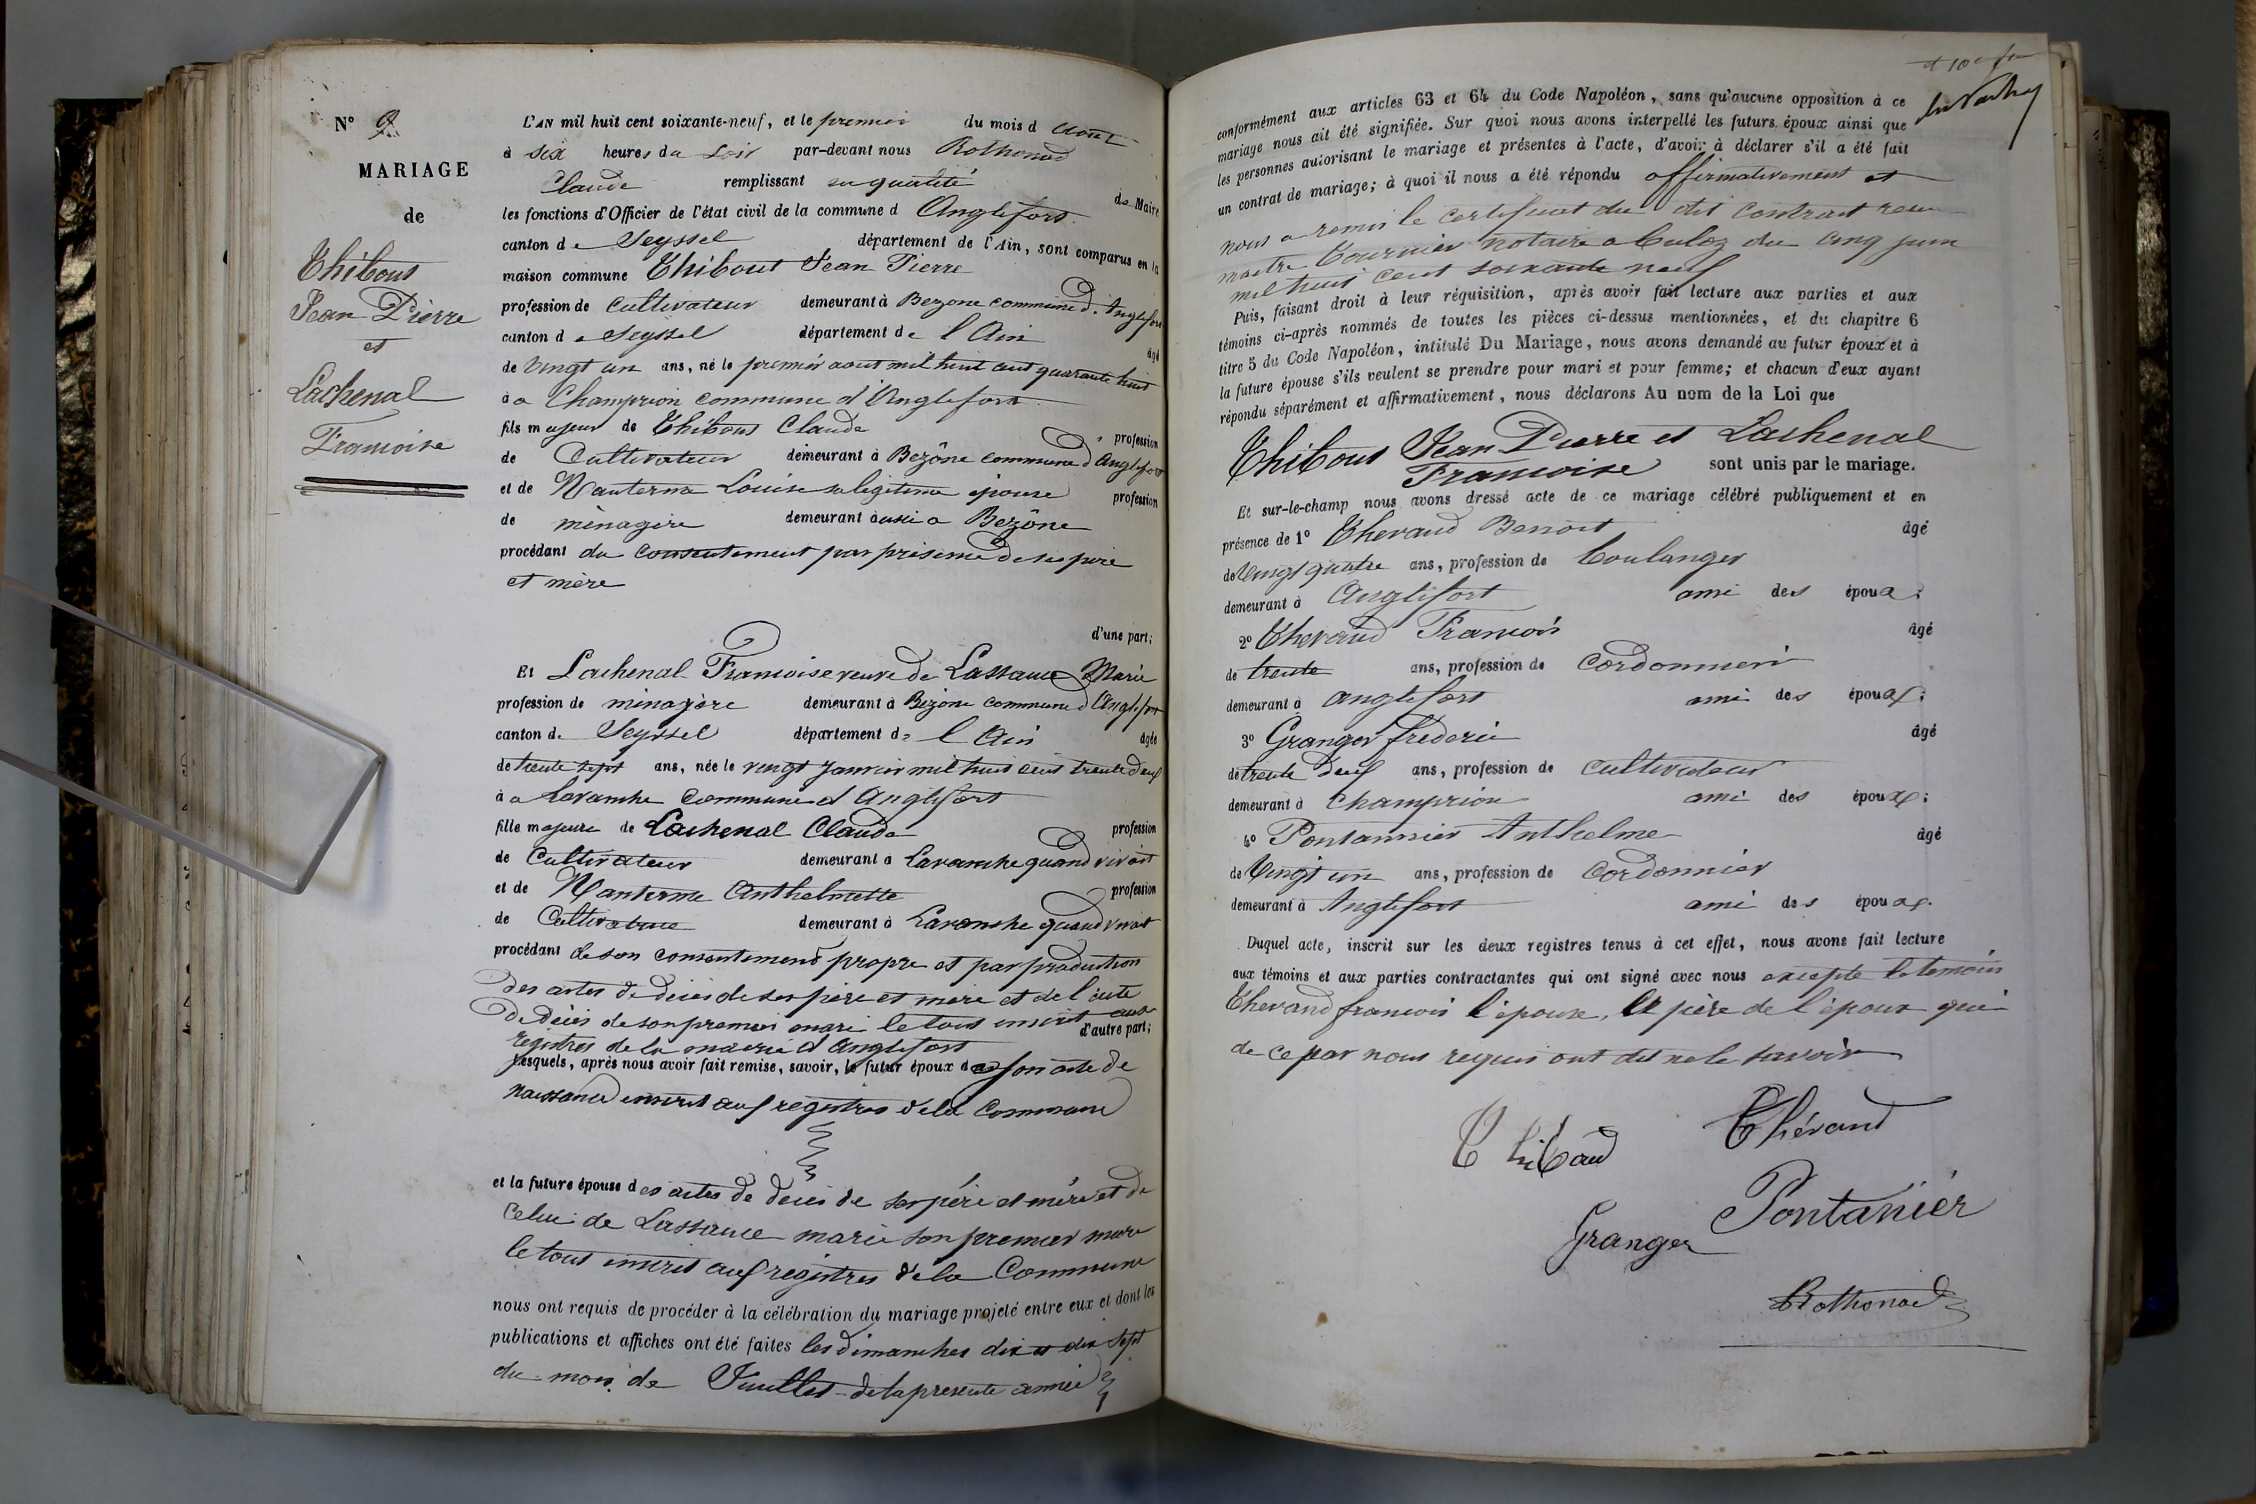 N° 9
MARIAGE
de
Thibout
Jean Pierre
et
Lachenal
Francoise
L'AN mil huit cent soixante-neuf, et le premier du mois d Aout
à six heures du soir par-devant nous Rothonod
Claude remplissant en qualité de Maire
les fonctions d'Officier de l'état civil de la commune d Anglefort
canton de Seyssel département de l'Ain, sont comparus en la
maison commune Thibout Jean Pierre
profession de cultivateur demeurant à Bezone commune d'Anglefort
canton de Seyssel département de l'Ain âgé
de vingt un ans, né le premier aout mil huit cent quarante huit
à a Champrion commune d'Anglefort
fils majeur de Thibout Claude profession
de Cultivateur demeurant à Bezône commune d'Anglefort
et de Nanterme Louise sa legitime épouse profession
de ménagère demeurant aussi a Bezône
procédant du consentement par présence de ses père
et mère
d'une part;
Et Lachenal Francoise veuve de Lassauce Marie
profession de ménagère demeurant à Bezône commune d'Anglefort
canton de Seyssel département de l'Ain âgée
de trente sept ans, née le vingt janvier mil huit cent trente deux
à a Lavanche commune d'Anglefort
fille majeure de Lachenal Claude profession
de Cultivateur demeurant à Lavanche quand vivait
et de Nanterme Anthelmette profession
de Cultivatrice demeurant à Lavanche quand vivait
procédant de son consentement propre et par production
des actes de décès de ses père et mère et de l'acte
de décès de son premier mari le tout inscrit aux
registres de la mairie d'Anglefort d'autre part;
Lesquels, après nous avoir fait remise, savoir, le futur époux de son acte de
naissance inscrit aux registres de la Commune
et la future épouse des actes de décès de ses père et mère et de
celui de Lassauce marie son premier mari
le tout inscrit aux registres de la Commune
nous ont requis de procéder à la célébration du mariage projeté entre eux et dont les
publications et affiches ont été faites les dimanches dix et dix sept
du mois de Juillet de la présente année
conformément aux articles 63 et 64 du Code Napoléon, sans qu'aucune opposition à ce
mariage nous ait été signifiée. Sur quoi nous avons interpellé les futurs époux ainsi que
les personnes autorisant le mariage et présentes à l'acte, d'avoir à déclarer s'il a été fait
un contrat de mariage; à quoi il nous a été répondu affirmativement et
nous a remis le certificat du dit contrat recu
maitre Tournier notaire a Culoz du cinq juin
mil huit cent soixante neuf
Puis, faisant droit à leur réquisition, après avoir fait lecture aux parties et aux
témoins ci-après nommés de toutes les pièces ci-dessus mentionnées, et du chapitre 6
titre 5 du Code Napoléon, intitulé Du Mariage, nous avons demandé au futur époux et à
la future épouse s'ils veulent se prendre pour mari et pour femme; et chacun d'eux ayant
répondu séparément et affirmativement, nous déclarons Au nom de la Loi que
Thibout Jean Pierre et Lachenal
Francoise sont unis par le mariage.
Et sur-le-champ nous avons dressé acte de ce mariage célébré publiquement et en
présence de 1° Thevand Benoit âgé
de Vingt quatre ans, profession de boulanger
demeurant à Anglefort ami des époux;
2° Thevand Francois âgé
de trente ans, profession de cordonnier
demeurant à Anglefort ami des époux;
3° Granger fréderic âgé
de trente deux ans, profession de cultivateur
demeurant à Champrion ami des époux;
4° Pontannier Anthelme âgé
de Vingt un ans, profession de Cordonnier
demeurant à Anglefort ami des époux.
Duquel acte, inscrit sur les deux registres tenus à cet effet, nous avons fait lecture
aux témoins et aux parties contractantes qui ont signé avec nous excepté le témoin
Thevand francois l'épouse, le père de l'époux qui
de ce par nous requis ont dit ne le savoir
Thibaud
Thévand
Pontanier
Granger
Rothonod